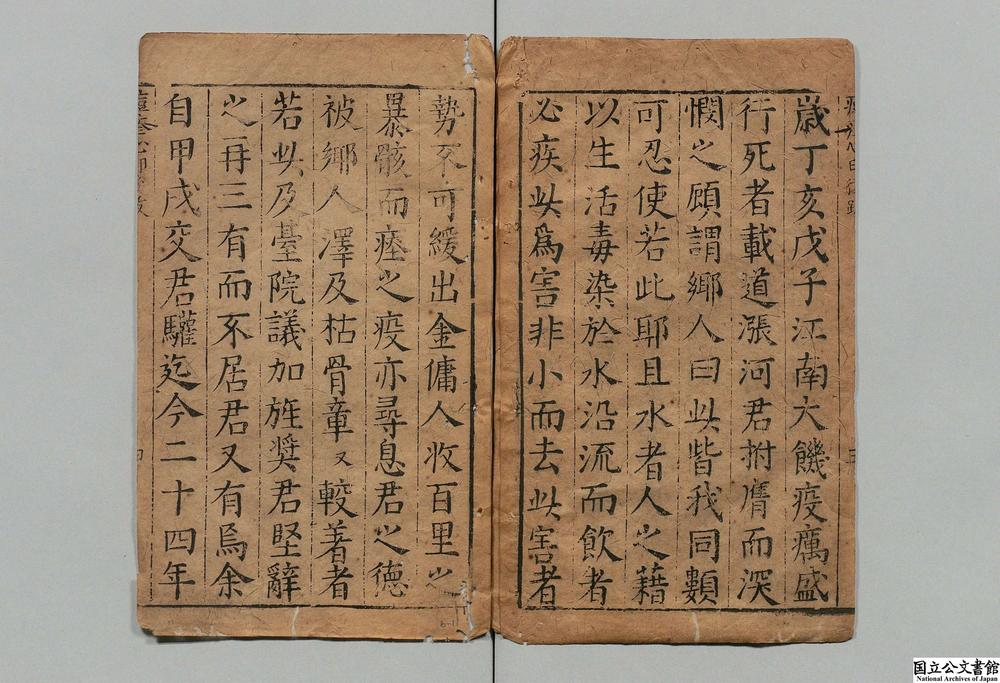 歳丁亥戊子江南大饑疫癘盛
行死者載道漲河君拊膺而深
憫之顧謂鄉人曰此皆我同類
可忍使若此耶且水者人之藉
以生活毒染於水沿流而飲者
必疾此爲害非小而去此害者
勢不可緩出金傭人收百里之
暴骸而瘞之疫亦尋息君之德
被鄉人澤及枯骨章又較著者
若此及臺院議加旌奬君堅辭
之再三有而不居君又有焉余
自甲戌交君驩迄今二十四年
国立公文書館
National Archives of Japan